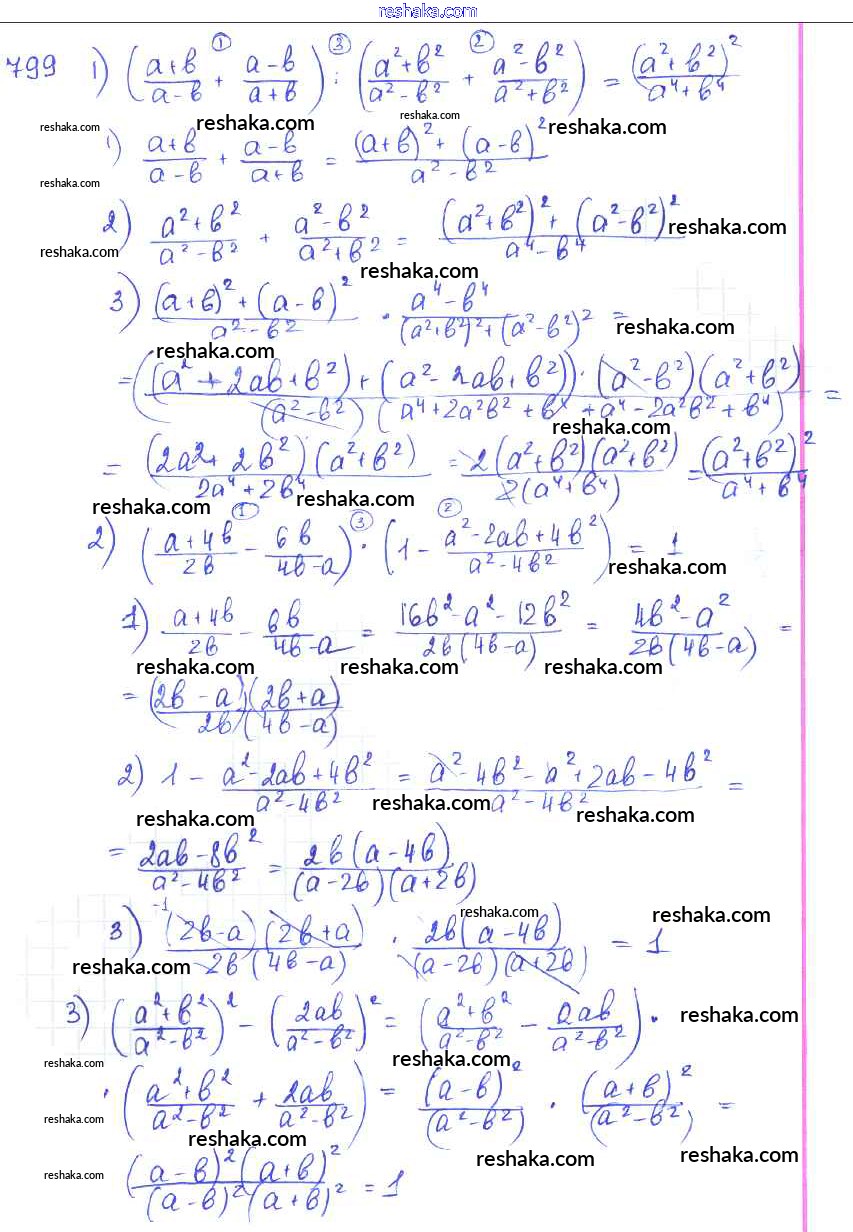 reshaka.com
799 1) ((a+b)/(a-b) + (a-b)/(a+b)) : ((a²+b²)/(a²-b²) + (a²-b²)/(a²+b²)) = (a²+b²)²/(a⁴+b⁴)
① ③ ②
reshaka.com reshaka.com reshaka.com reshaka.com
1) (a+b)/(a-b) + (a-b)/(a+b) = ((a+b)²+(a-b)²)/(a²-b²)
reshaka.com
2) (a²+b²)/(a²-b²) + (a²-b²)/(a²+b²) = ((a²+b²)²+(a²-b²)²)/(a⁴-b⁴) reshaka.com
reshaka.com reshaka.com
3) ((a+b)²+(a-b)²)/(a²-b²) · (a⁴-b⁴)/((a²+b²)²+(a²-b²)²) = reshaka.com
reshaka.com
= ((a²+2ab+b²)+(a²-2ab+b²))·(a²-b²)(a²+b²)/((a²-b²)(a⁴+2a²b²+b⁴+a⁴-2a²b²+b⁴)) =
reshaka.com
= (2a²+2b²)(a²+b²)/(2a⁴+2b⁴) = 2(a²+b²)(a²+b²)/(2(a⁴+b⁴)) = (a²+b²)²/(a⁴+b⁴)
reshaka.com reshaka.com
① ③ ②
2) ((a+4b)/(2b) - 6b/(4b-a)) · (1 - (a²-2ab+4b²)/(a²-4b²)) = 1
reshaka.com
1) (a+4b)/(2b) - 6b/(4b-a) = (16b²-a²-12b²)/(2b(4b-a)) = (4b²-a²)/(2b(4b-a)) =
reshaka.com reshaka.com reshaka.com
= (2b-a)(2b+a)/(2b(4b-a))
2) 1 - (a²-2ab+4b²)/(a²-4b²) = (a²-4b²-a²+2ab-4b²)/(a²-4b²) =
reshaka.com reshaka.com reshaka.com
= (2ab-8b²)/(a²-4b²) = 2b(a-4b)/((a-2b)(a+2b))
-1
reshaka.com reshaka.com
3) (2b-a)(2b+a)/(2b(4b-a)) · 2b(a-4b)/((a-2b)(a+2b)) = 1
reshaka.com
3) ((a²+b²)/(a²-b²))² - (2ab/(a²-b²))² = ((a²+b²)/(a²-b²) - 2ab/(a²-b²)) · reshaka.com
reshaka.com reshaka.com
· ((a²+b²)/(a²-b²) + 2ab/(a²-b²)) = (a-b)²/(a²-b²) · (a+b)²/(a²-b²) =
reshaka.com
reshaka.com reshaka.com reshaka.com
(a-b)²(a+b)²/((a-b)²(a+b)²) = 1
reshaka.com